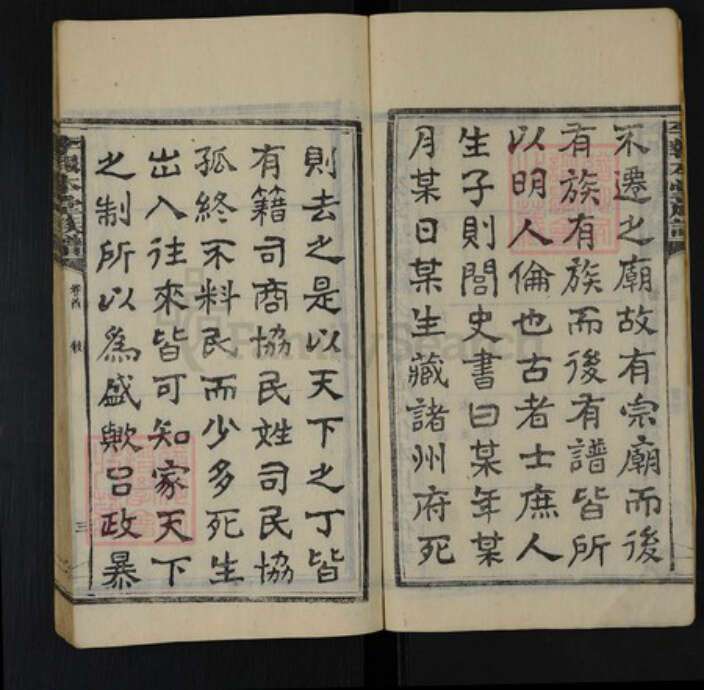 不遷之廟故有宗廟而後
有族有族而後有譜皆所
以明人倫也古者士庶人
生子則閭史書曰某年某
月某日某生藏諸州府死
則去之是以天下之丁皆
有籍司商協民姓司民協
孤終不料民而少多死生
出入往來皆可知家天下
之制所以爲盛歟呂政暴
三
FamilySearch